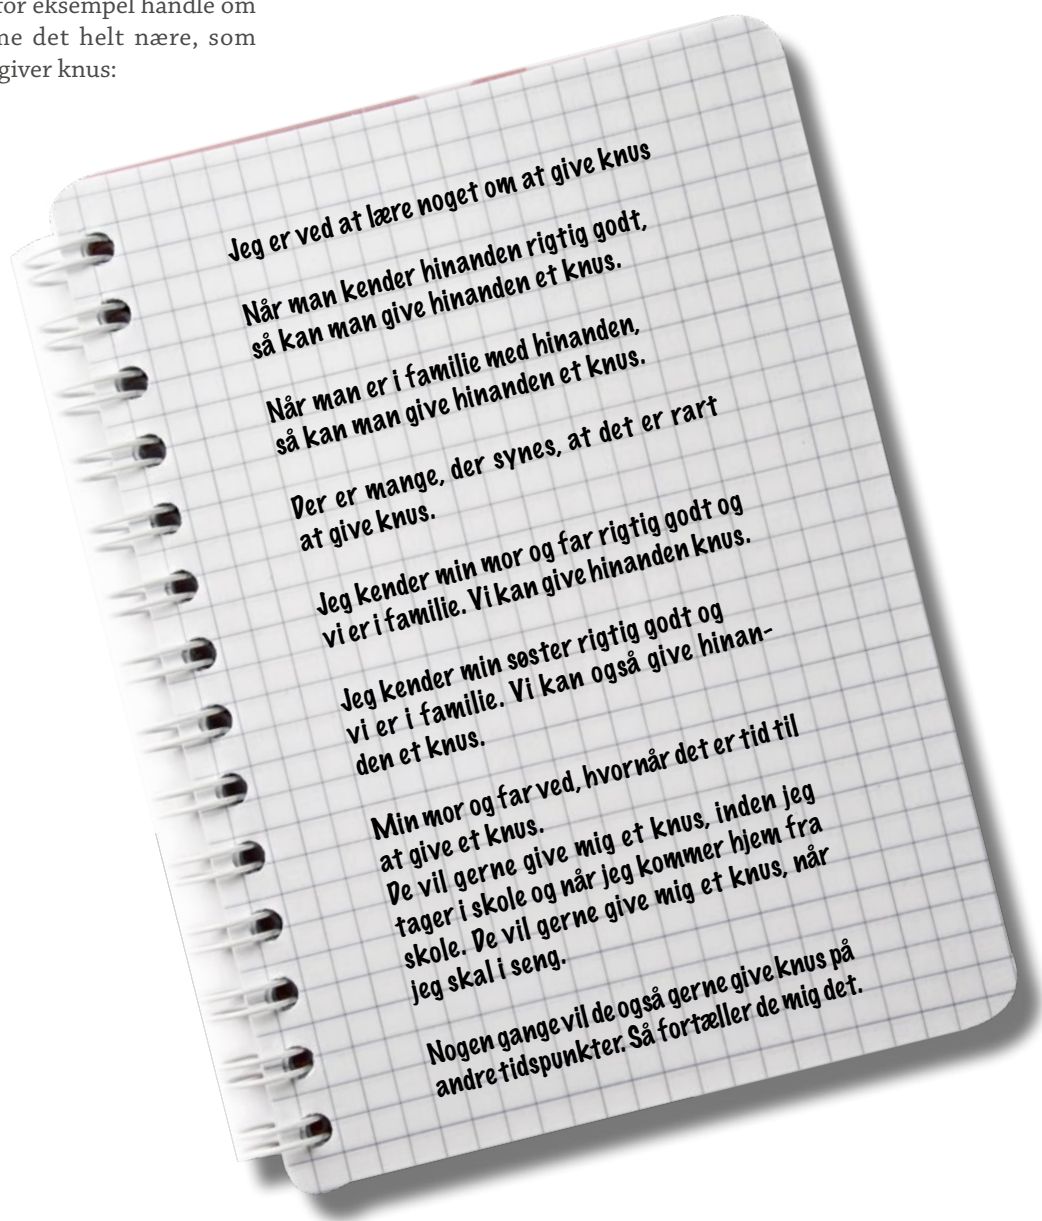 for eksempel handle om
me det helt nære, som
giver knus:
Jeg er ved at lære noget om at give knus
Når man kender hinanden rigtig godt,
så kan man give hinanden et knus.
Når man er i familie med hinanden,
så kan man give hinanden et knus.
Der er mange, der synes, at det er rart
at give knus.
Jeg kender min mor og far rigtig godt og
vi er i familie. Vi kan give hinanden knus.
Jeg kender min søster rigtig godt og
vi er i familie. Vi kan også give hinan-
den et knus.
Min mor og far ved, hvornår det er tid til
at give et knus.
De vil gerne give mig et knus, inden jeg
tager i skole og når jeg kommer hjem fra
skole. De vil gerne give mig et knus, når
jeg skal i seng.
Nogen gange vil de også gerne give knus på
andre tidspunkter. Så fortæller de mig det.